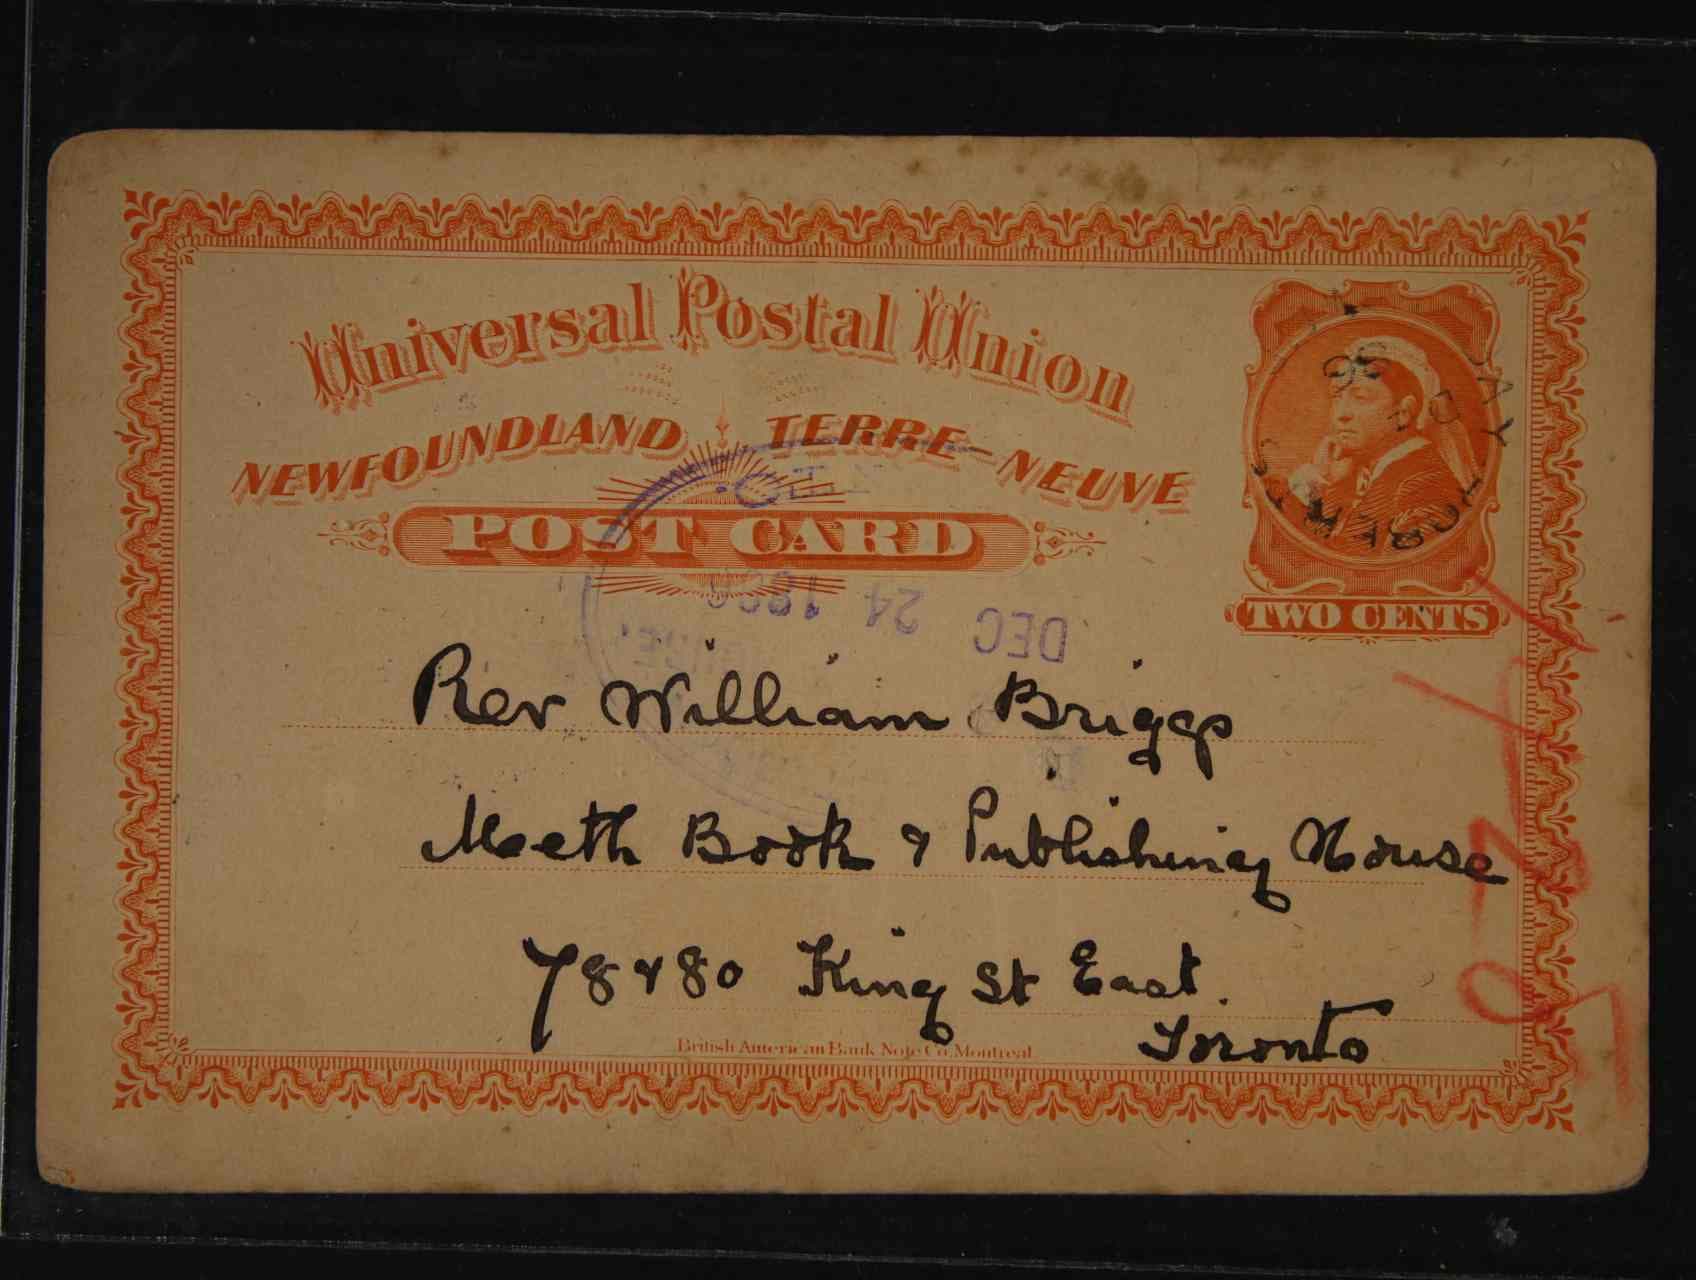 Universal Postal Union
NEWFOUNDLAND TERRE-NEUVE
POST CARD
TWO CENTS
DEC 24
Rev William Briggs
Meth Book & Publishing House
78 & 80 King St East.
Toronto
British American Bank Note Co. Montreal